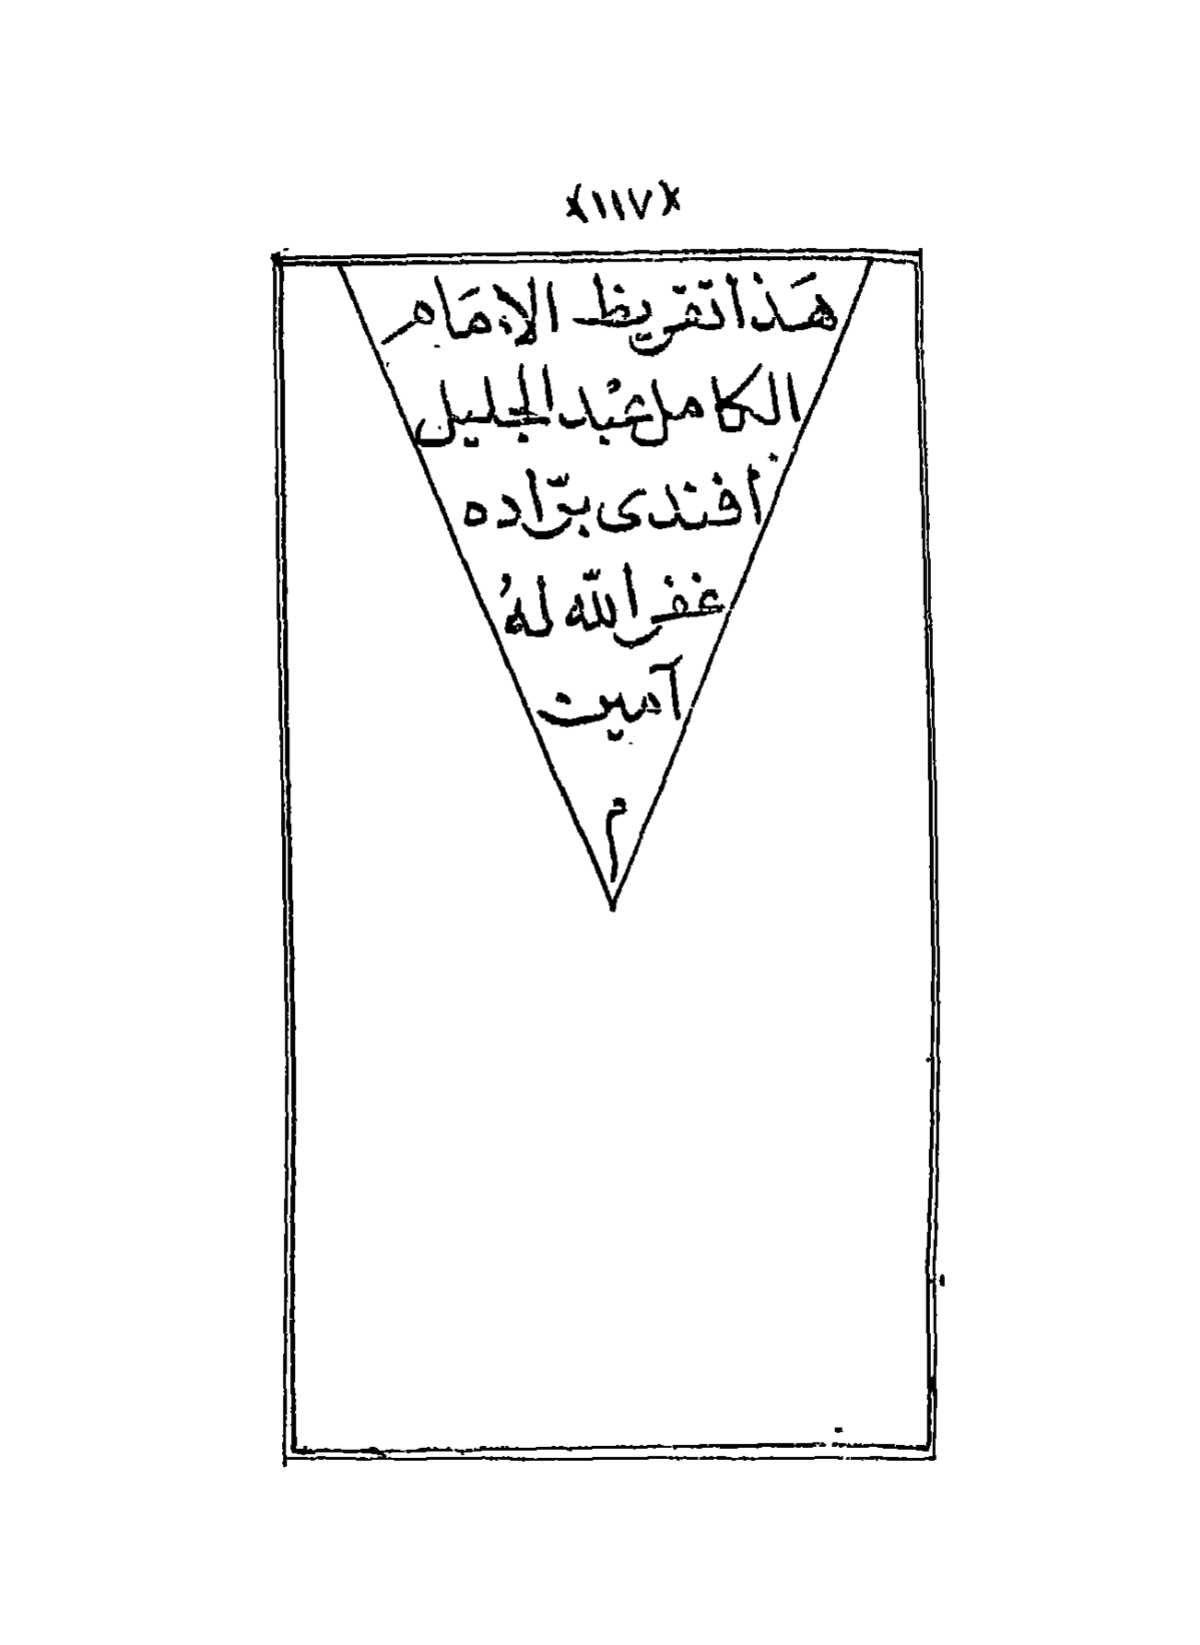 (١١٧)
هَذا تقريظ الإمَام
الكامل عبْد الجليل
أفندى برّاده
غفر الله لهُ
آمين
م